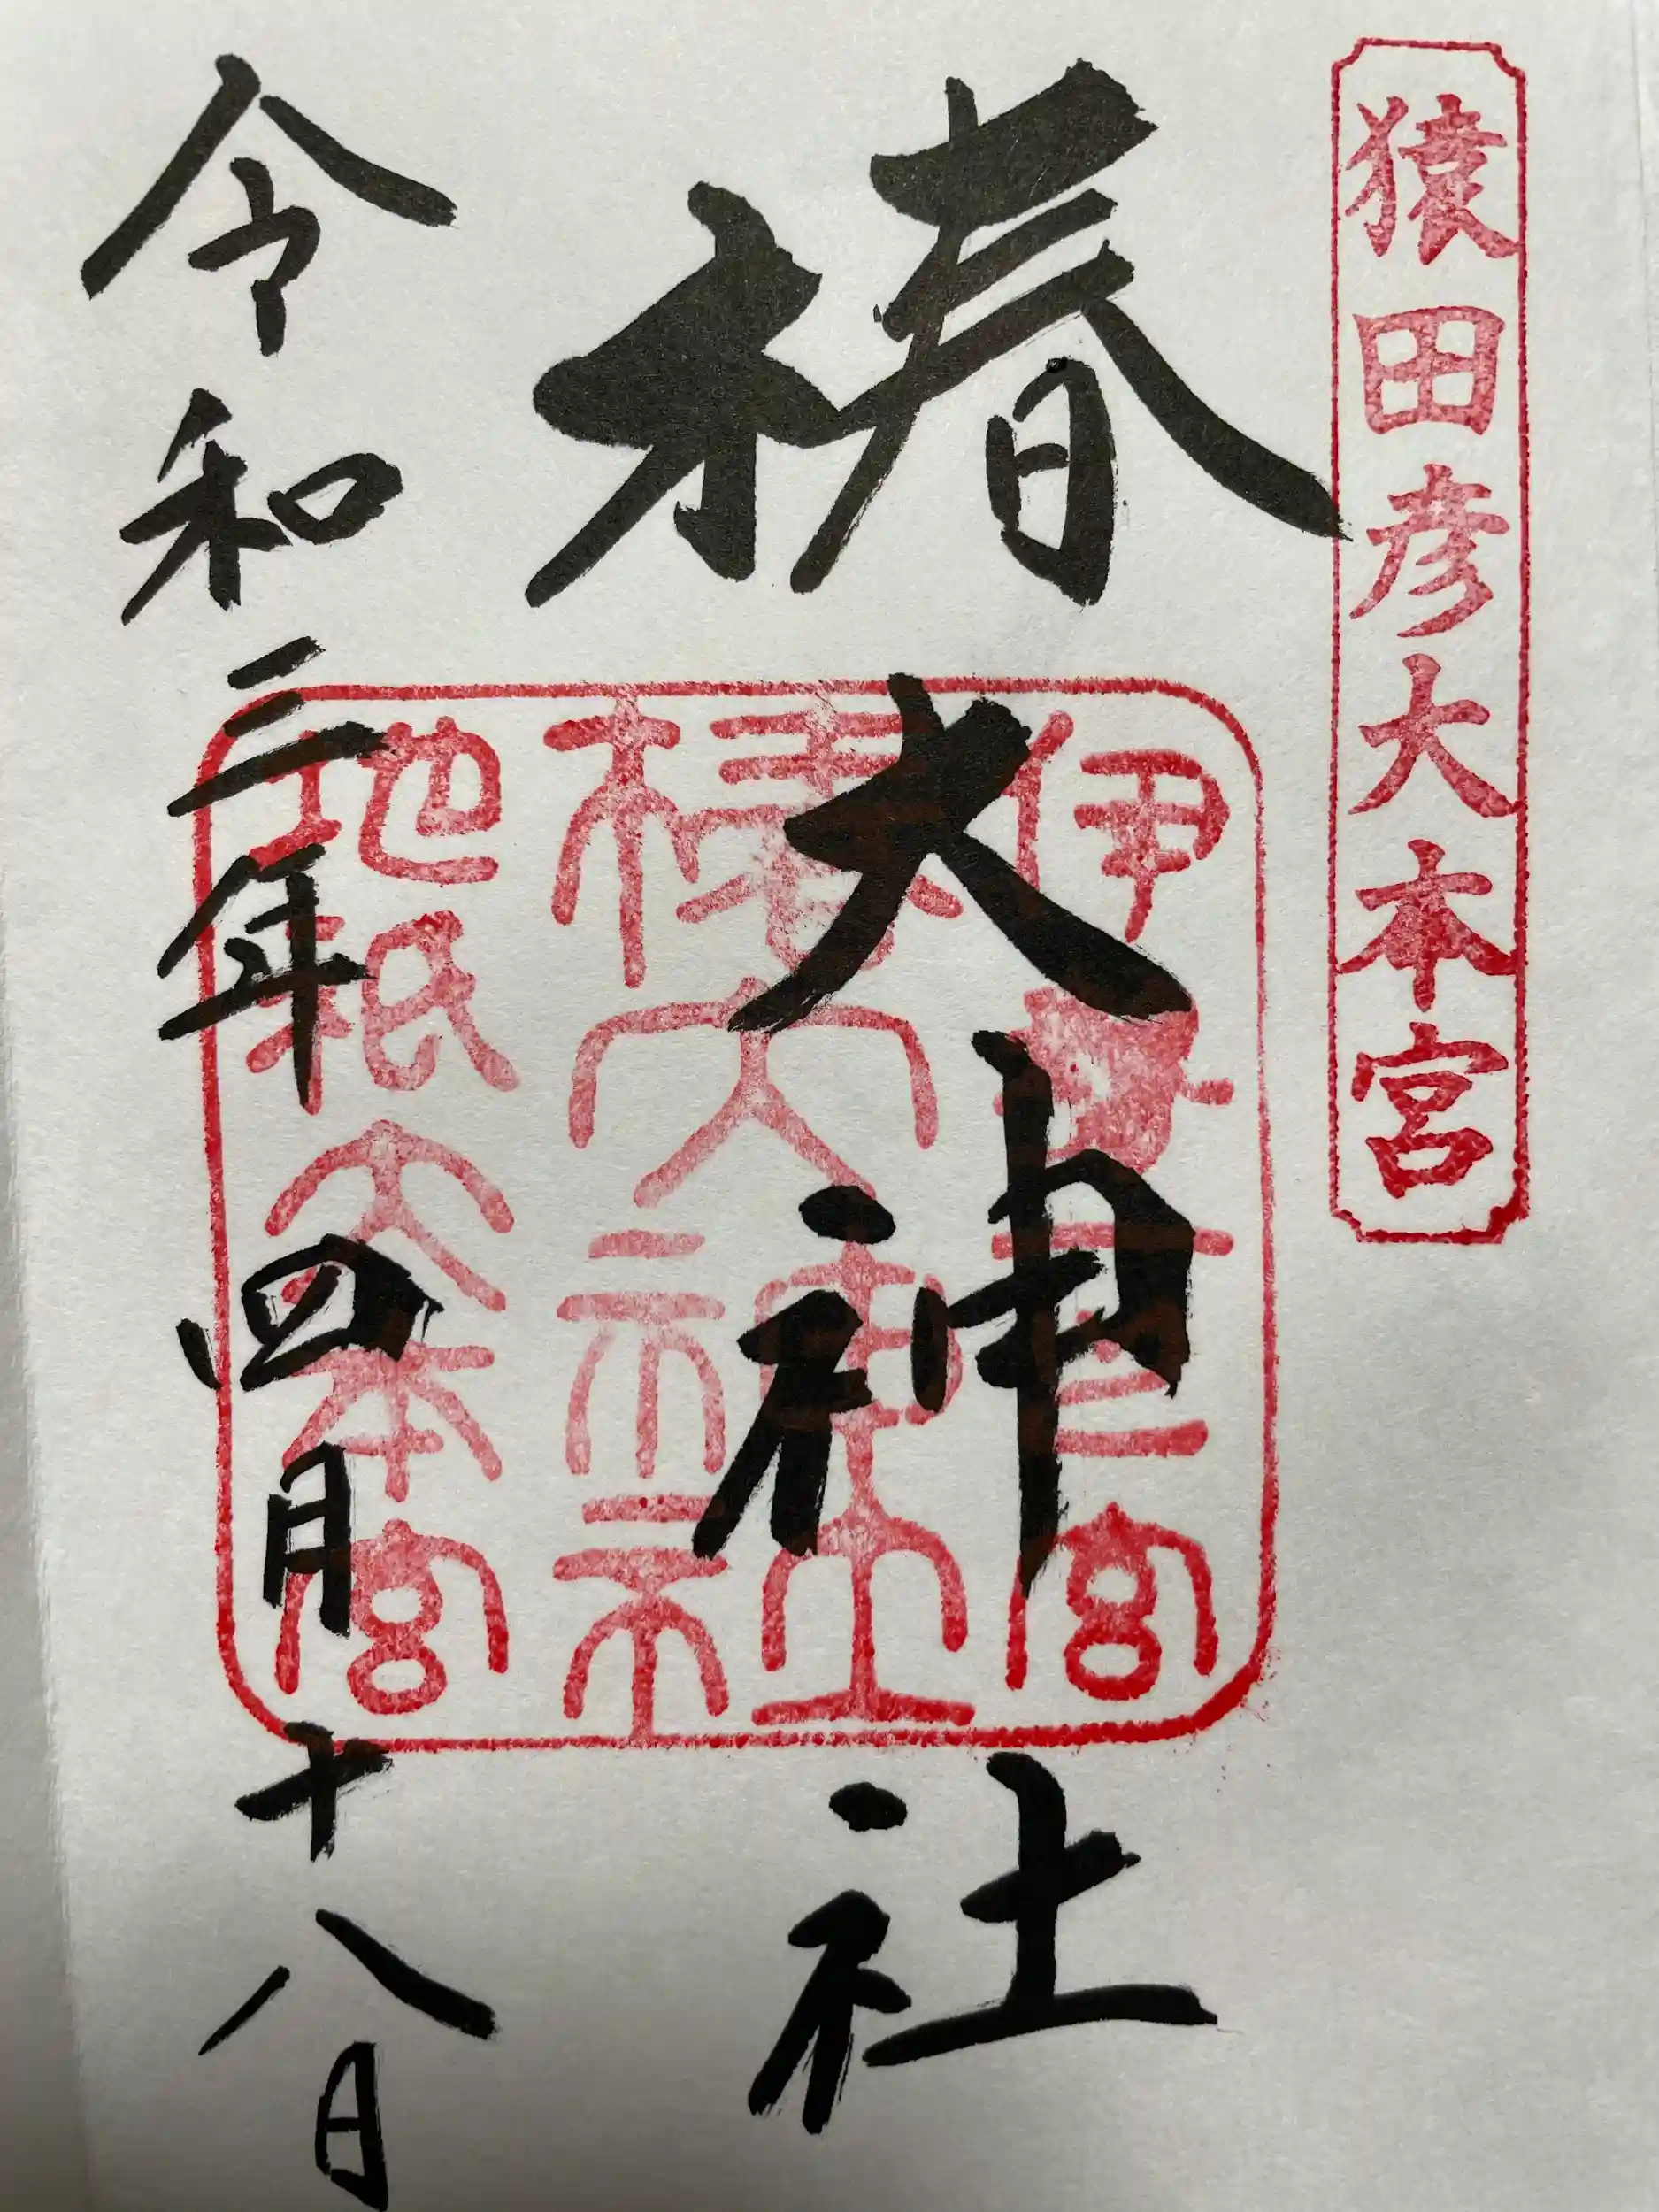 猿田彦大本宮
椿大神社
伊勢一 宮
椿大神社
地祇大本宮
令和三年四月十八日